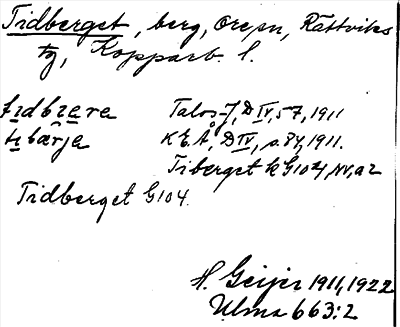 Tidberget, berg, Ore sn, Rättviks
tg, Kopparb. l.
tıdbı̯ɛrɛ Talos-J, D IV, 57, 1911
tıbærja K E Å, D IV, s. 84, 1911.
Tiberget k G 104, NV, a2
Tidberget G 104
H. Geijer 1911, 1922
Ulma 663:2